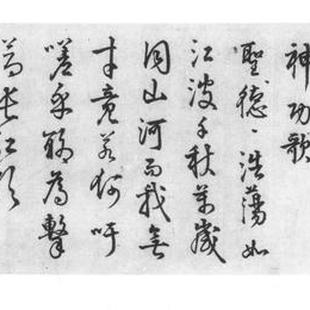 神功歌
聖德、浩蕩如
江波千秋萬歲
同山河而我無
才竟若何吁
嗟乎聊為擊